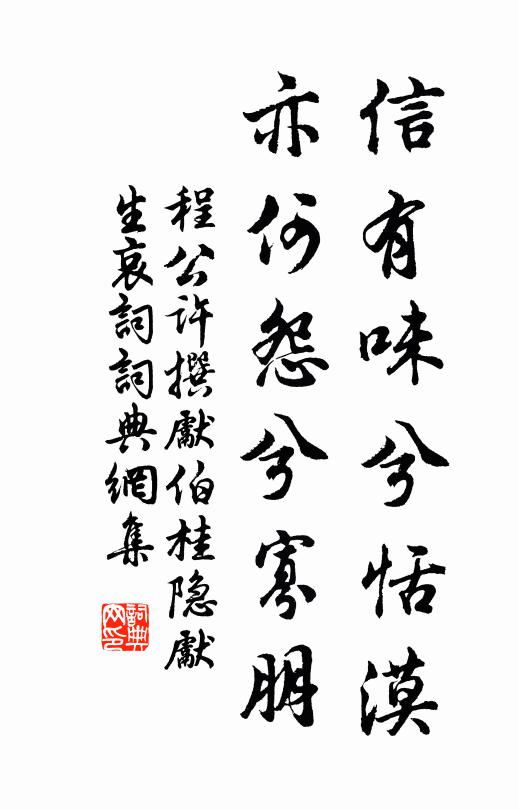 信有味兮恬漠
亦何怨兮寡朋
程公许撰獻伯桂隐獻
生哀詞詞典網集
詞典
网印